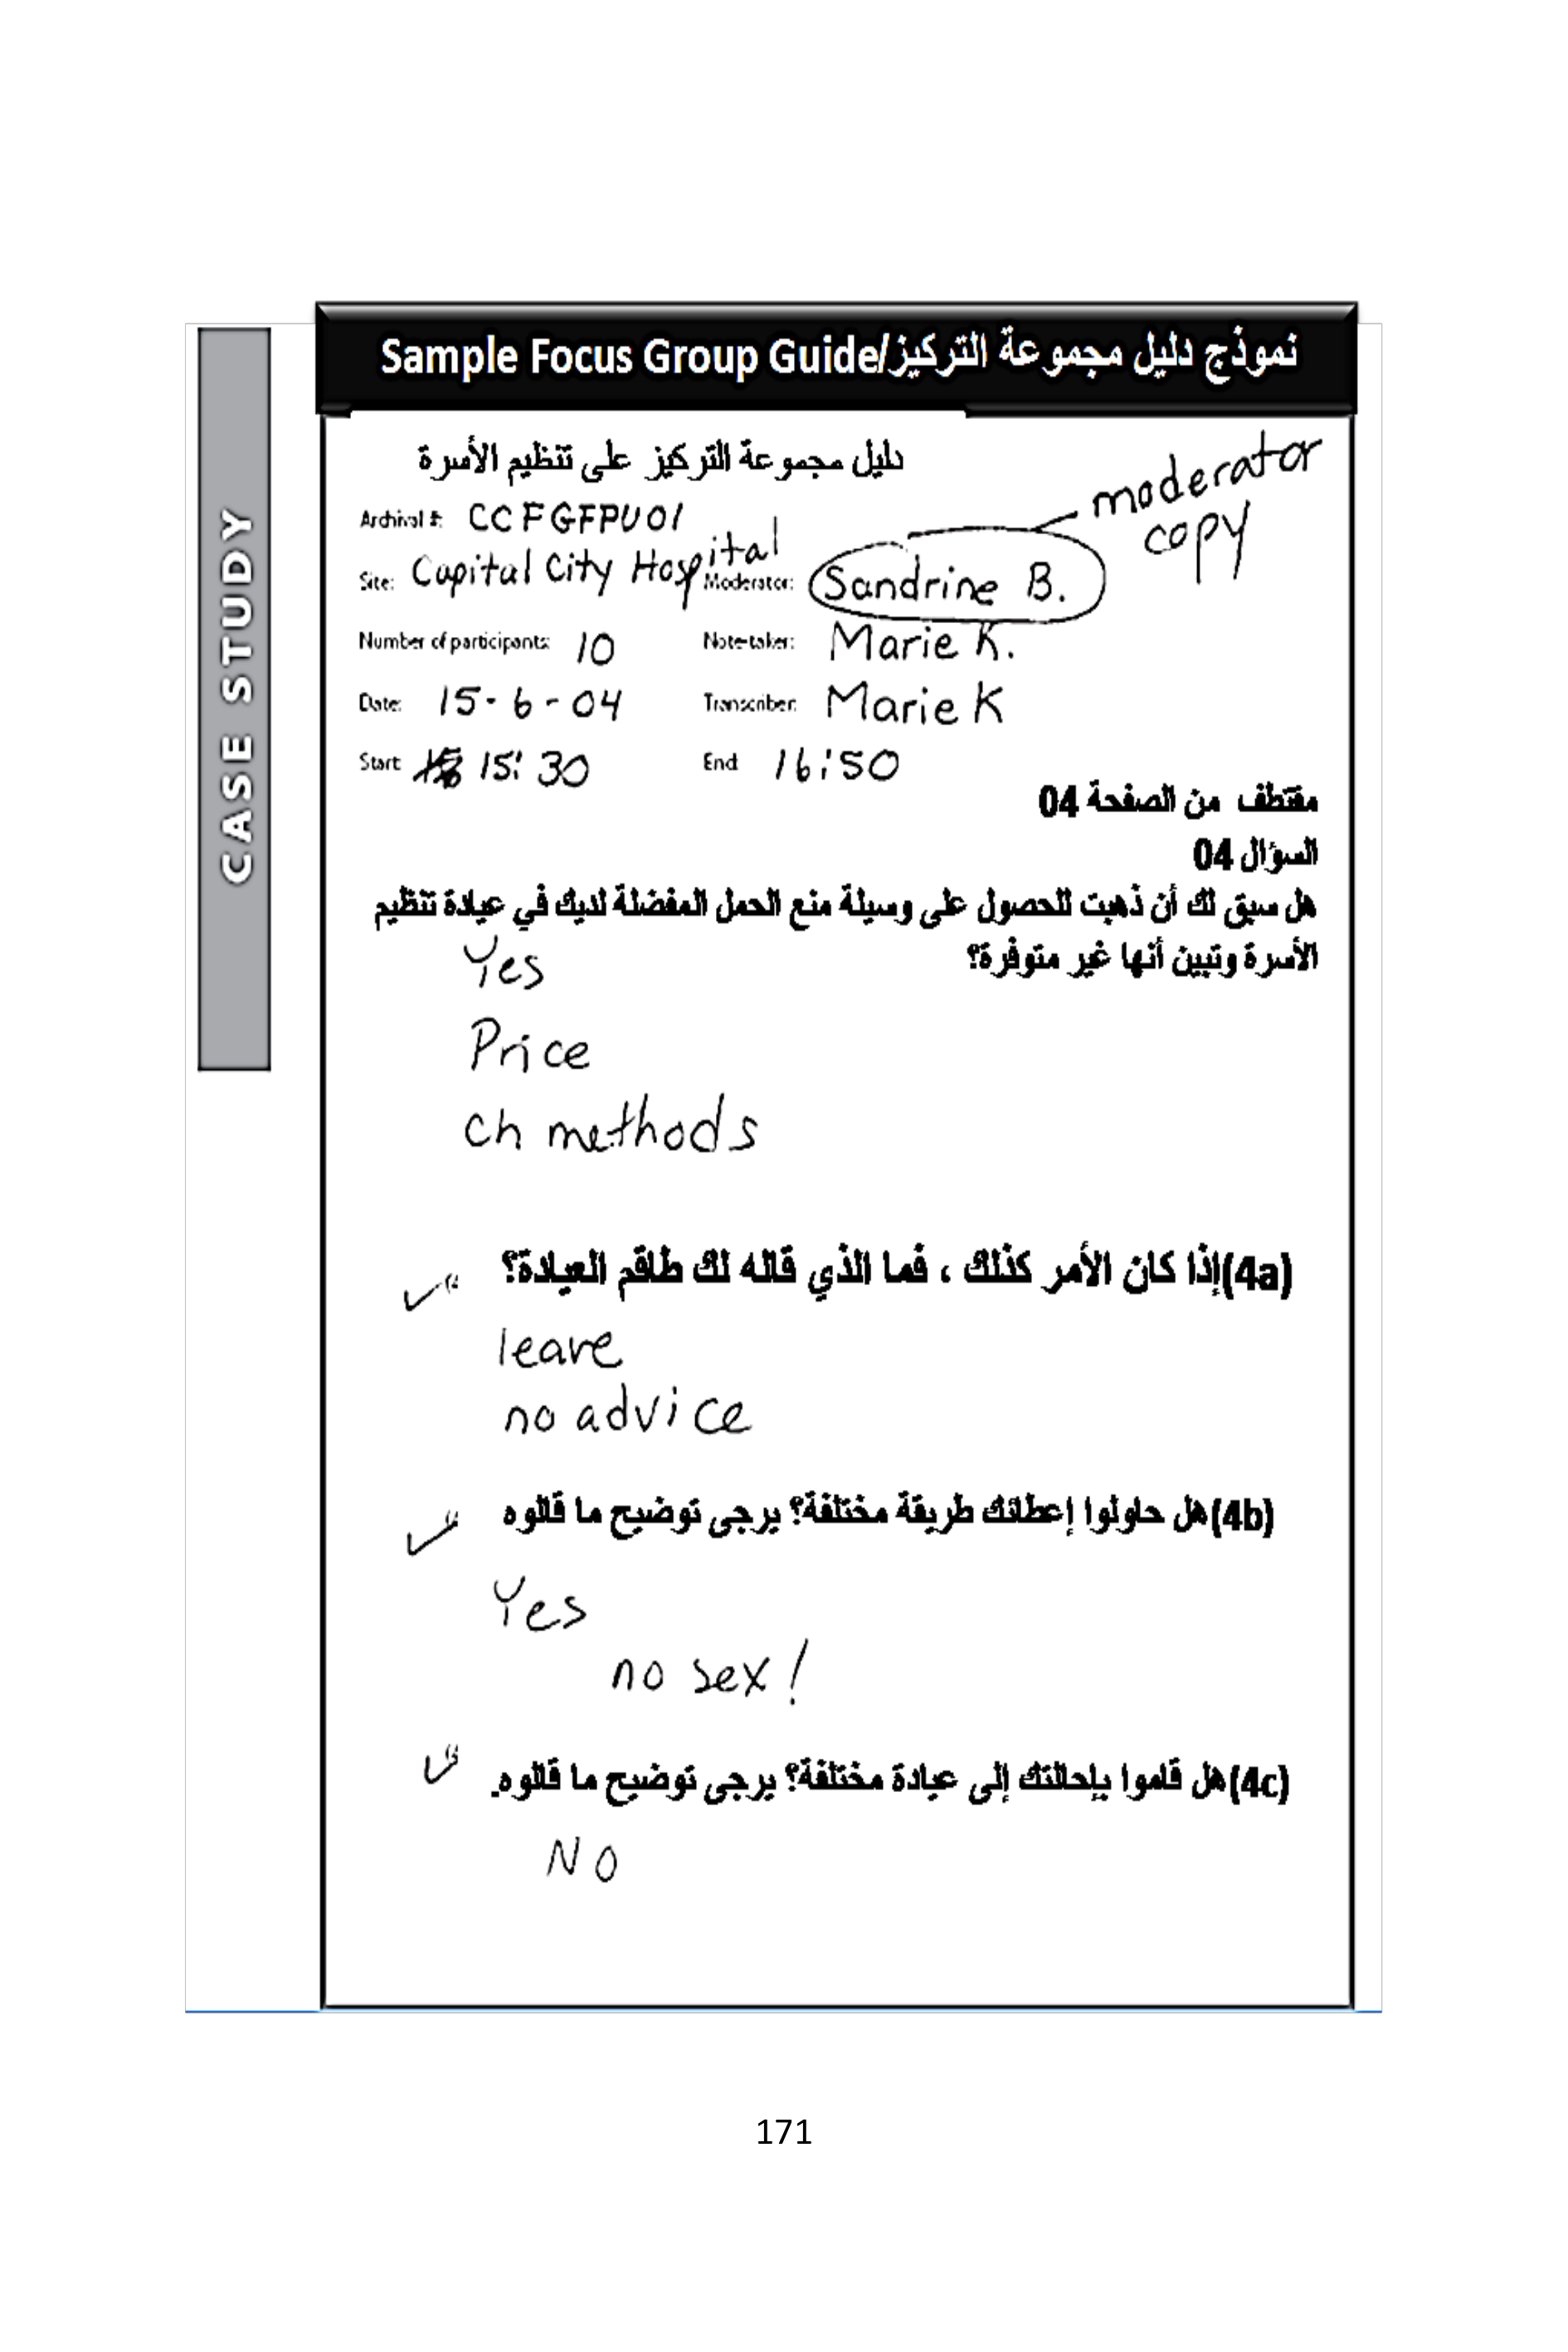 نموذج دليل مجموعة التركيز/Sample Focus Group Guide
CASE STUDY
دليل مجموعة التركيز على تنظيم الأسرة
moderator
copy
Archival #: CCFGFPU01
Site: Capital City Hospital Moderator: Sandrine B.
Number of participants: 10 Note-taker: Marie K.
Date: 15-6-04 Transcriber: Marie K
Start: 15:30 End: 16:50
مقتطف من الصفحة 04
السؤال 04
هل سبق لك أن ذهبت للحصول على وسيلة منع الحمل المفضلة لديك في عيادة تنظيم
الأسرة وتبين أنها غير متوفرة؟
Yes
Price
Ch methods
(4a)إذا كان الأمر كذلك ، فما الذي قاله لك طاقم العيادة؟
leave
no advice
(4b)هل حاولوا إعطائك طريقة مختلفة؟ يرجى توضيح ما قالوه
Yes
no sex!
(4c)هل قاموا بإحالتك إلى عيادة مختلفة؟ يرجى توضيح ما قالوه.
NO
171